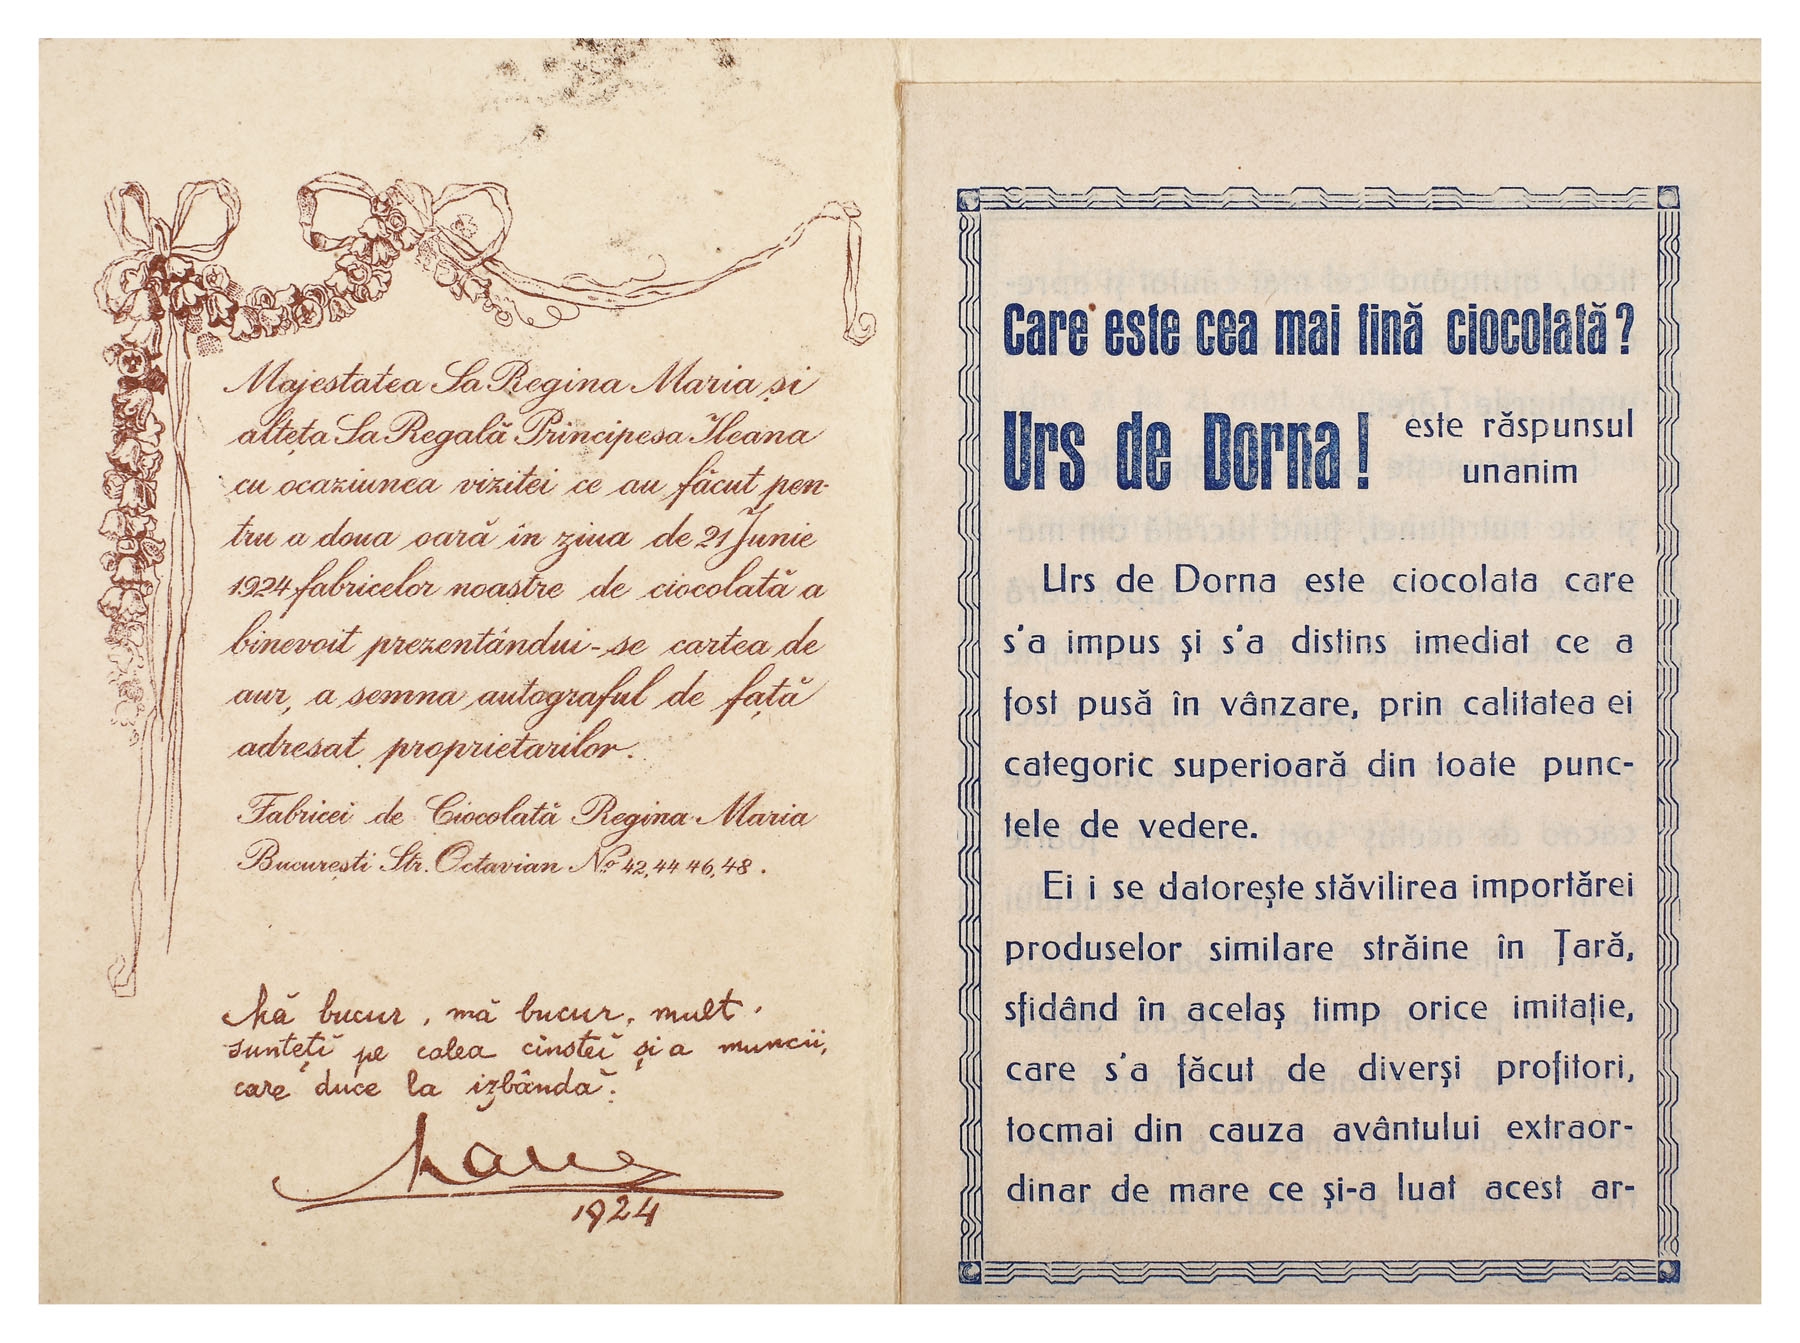 Majestatea Sa Regina Maria și
alteța Sa Regală Principesa Ileana
cu ocaziunea vizitei ce au făcut pen-
tru a doua oară în ziua de 21 Junie
1924 fabricelor noastre de ciocolată a
binevoit prezentândui-se cartea de
aur, a semna autograful de față
adresat proprietarilor.
Fabricei de Ciocolată Regina Maria
București Str. Octavian No 42, 44 46, 48.
Mă bucur, mă bucur, mult.
sunteți pe calea cinstei și a muncii,
care duce la izbândă.
1924
Care este cea mai fină ciocolată?
Urs de Dorna! este răspunsul
unanim
Urs de Dorna este ciocolata care
s'a impus și s'a distins imediat ce a
fost pusă în vânzare, prin calitatea ei
categoric superioară din toate punc-
tele de vedere.
Ei i se datorește stăvilirea importărei
produselor similare străine în Țară,
sfidând în acelaș timp orice imitație,
care s'a făcut de diverși profitori,
tocmai din cauza avântului extraor-
dinar de mare ce și-a luat acest ar-